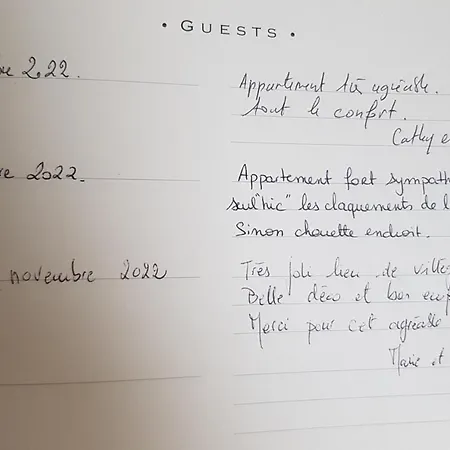 • GUESTS •
re 2022.
Appartement très agréable.
tout le confort.
Cathy e
re 2022.
Appartement fort sympath
seul "hic" les claquements de l
Sinon chouette endroit.
novembre 2022
Très joli lieu de ville
Belle déco et bon
Merci pour cet agréable
Marie et